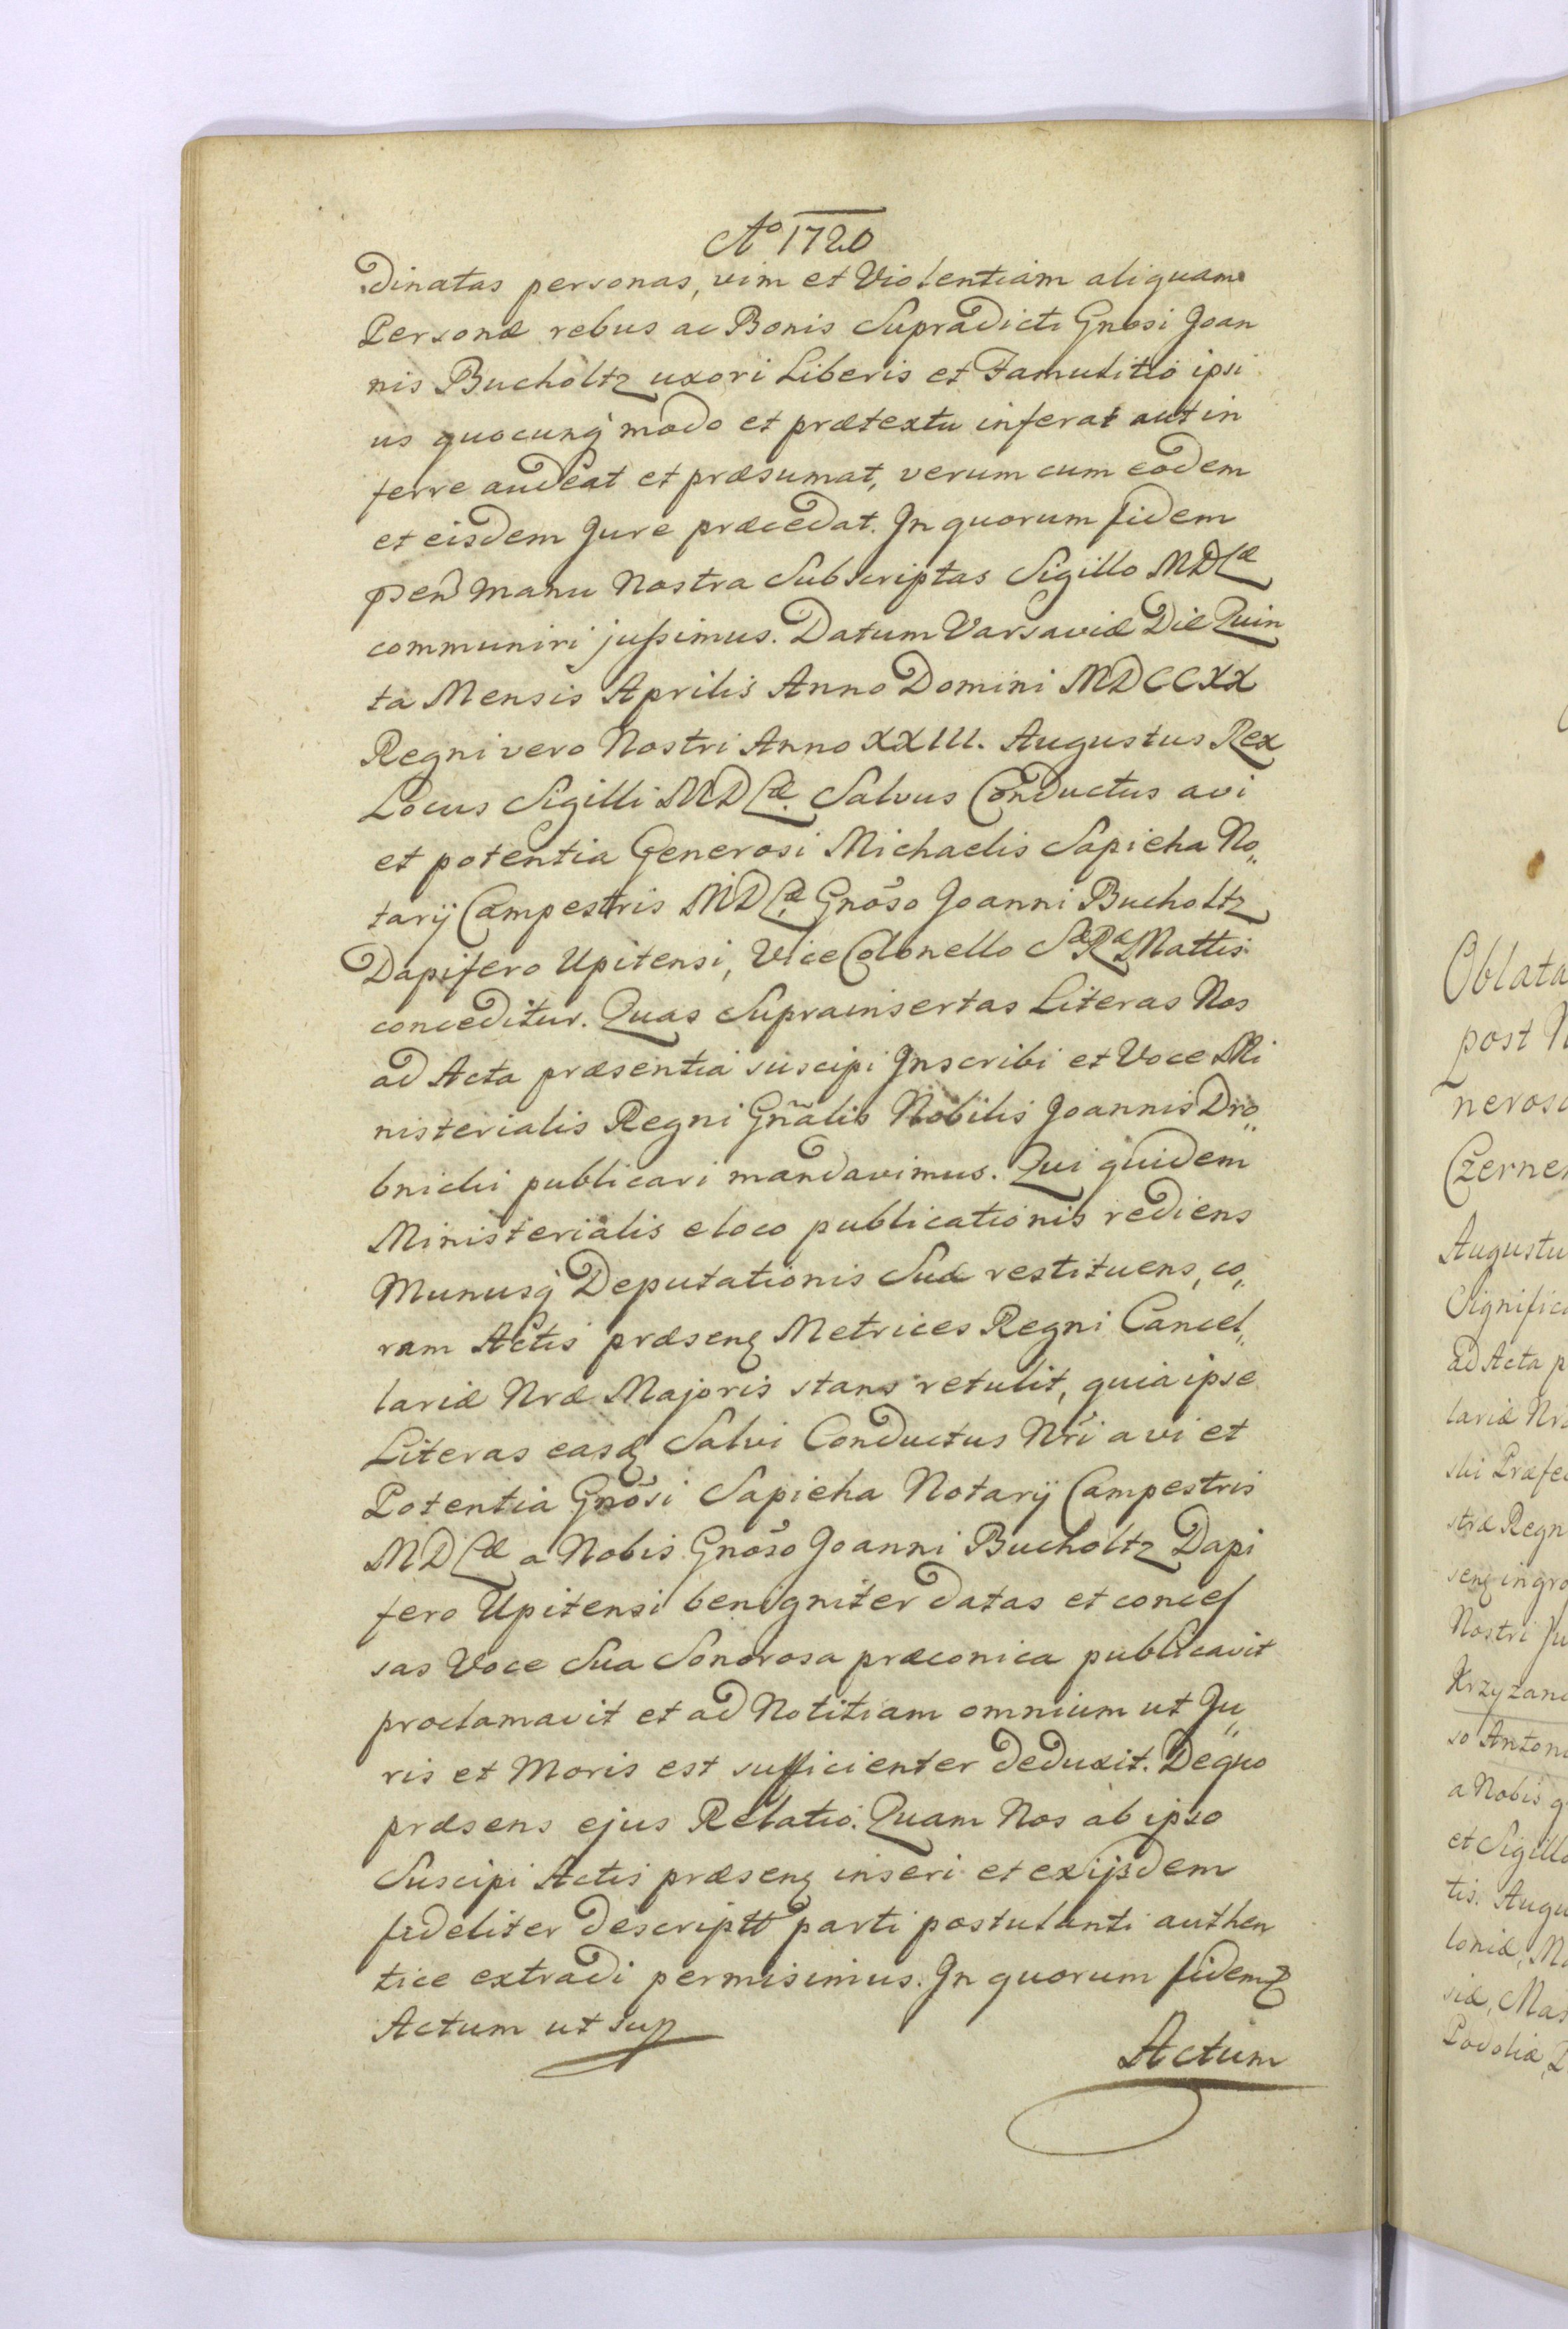 Aº 1720
dinatas personas, vim et Violentiam aliquam
Personæ rebus ac Bonis Supradicti Gnosi Joan
nis Bucholtz uxori Liberis et Famulitio ipsi
us quocunq̃ modo et prætextu inferat aut in
ferre audeat et præsumat, verum cum eodem
et eisdem Jure præcedat. In quorum fidem
pñs manu Nostra Subscriptas Sigillo MDLæ
communiri jussimus. Datum Varsaviæ Die Quin
ta Mensis Aprilis Anno Domini MDCCXX
Regni vero Nostri Anno XXIII. Augustus Rex
Locus Sigilli MDLæ. Salvus Conductus a vi
et potentia Generosi Michaelis Sapieha No„
tarij Campestris MDLæ. Gnõso Joanni Bucholtz
Dapifero Upitensi, ViceColonello SæRæMattis
conceditur. Quas Suprainsertas Literas Nos
ad Acta præsentia suscipi Inscribi et Voce Mi
nisterialis Regni Gñalis Nobilis Joannis Dro„
bnicki publicari mandavimus. Qui quidem
Ministerialis e loco publicationis rediens
Munusq̃ Deputationis Suæ restituens, co„
ram Actis præsenq Metrices Regni Cancel„
lariæ Nræ Majoris stans retulit, quia ipse
Literas easq Salvi Conductus Nri a vi et
Potentia Gnõsi Sapieha Notarij Campestris
MDLæ a Nobis Gnõso Joanni Bucholtz Dapi
fero Upitensi benigniter datas et conces
sas Voce Sua Sonorosa præconica publicavit
proclamavit et ad Notitiam omnium ut Ju„
ris et Moris est sufficienter deduxit. De quo
præsens ejus Relatio. Quam Nos ab ipso
Suscipi Actis præsenq inseri et ex ijsdem
fideliter descriptt parti postulanti authen
tice extradi permisimus. In quorum fidemq
Actum ut sup
Actum
Oblata
post N
neroso
Czerne
Augustu
Signific
ad Acta p
lariæ Nr
ski Præfe
stræ Regn
senq ingro
Nostri Ju
Krzyzan
so Anton
a Nobis q
et Sigillo
tis. Augu
loniæ, M
viæ, Mas
Podoliæ,